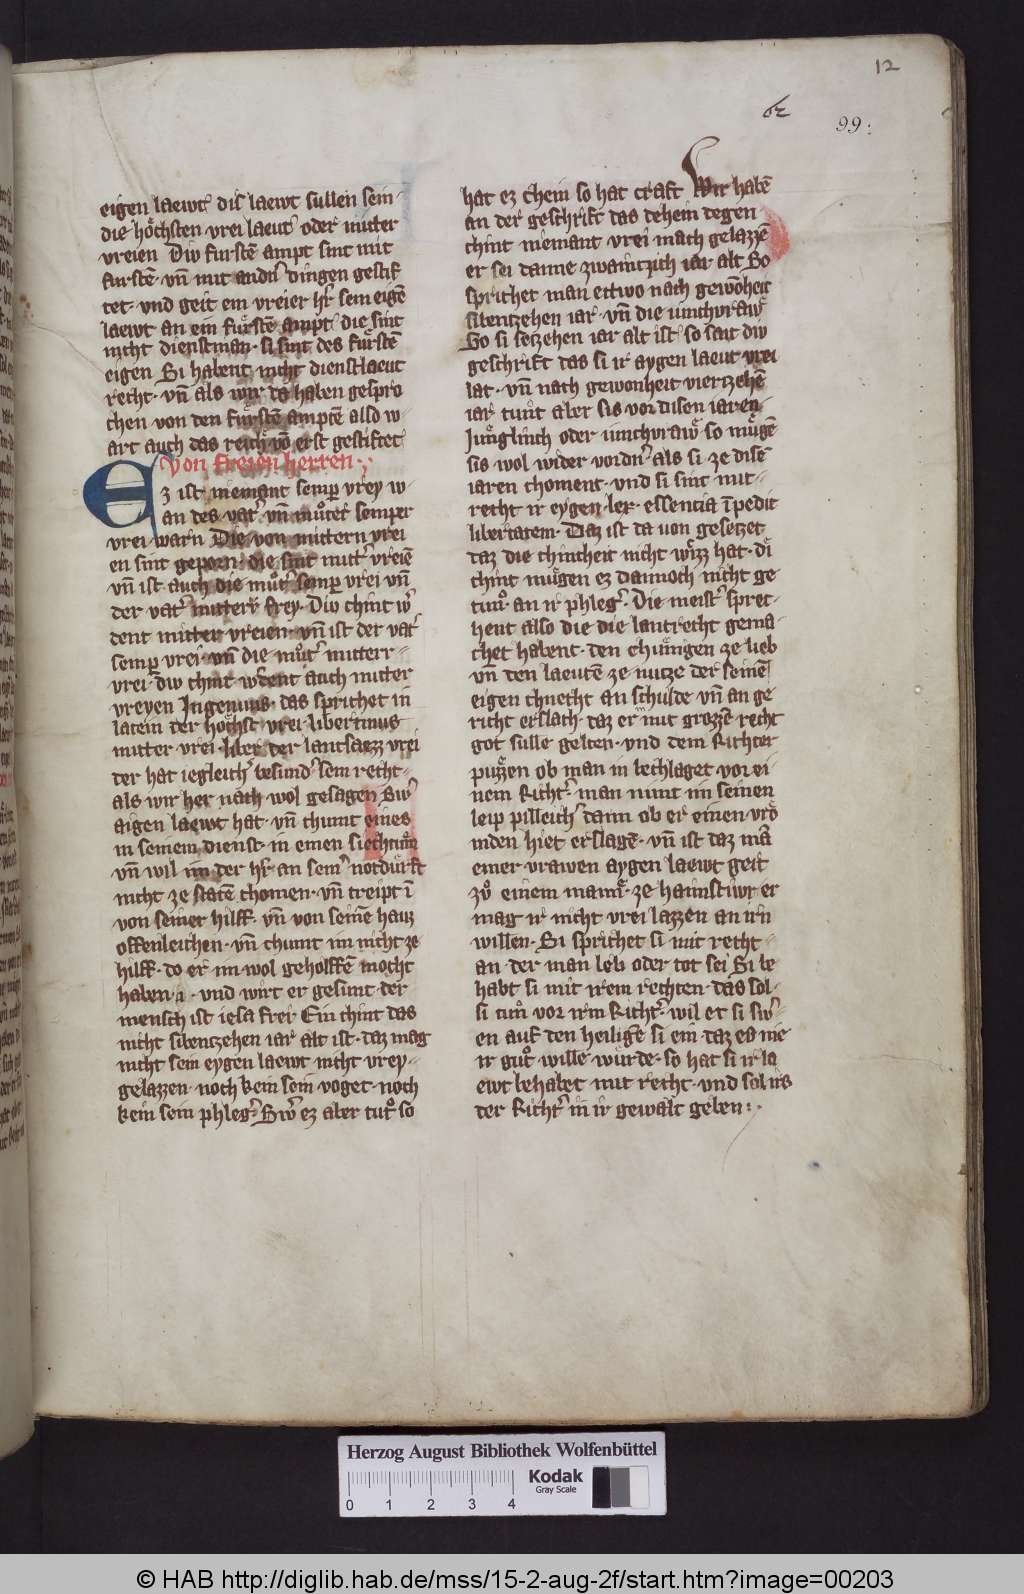 12
99:
eigen laewt dis laewt sullen sein
die höchsten vrei laeut oder mitter
vreien Diw furstē ampt sint mit
furstē vn̄ mit andn dingen gestif
tet vnd geit ein vreier hr̄ sein eigē
laewt an ein fuͤrstē ampt die sint
nicht dienstman si sint des fuͤrstē
eigen Si habent nicht dienstlaeut
recht vn̄ als wir da haben gespro
chen von den fuͤrstē amptē also w
art auch das reich vō erst gestiftet
Von freien herren
Ez ist niemant semp vrey w
an des vat vn̄ muͦter semper
vrei warn Die von mittern vrei
en sint geporn die sint mitt vreiē
vn̄ ist auch die muͦt semp vrei vn̄
der vat mitterr frey Diw chint w
dent mitter vreien vn̄ ist der vat
semp vrei vn̄ die muͦt mitterr
vrei diw chint wdent auch mitter
vreyen Ingenuus das sprichet in
latein der höchst vrei libertinus
mitter vrei liber der lantsaezz vrei
der hat iegleich besund sein recht
als wir her nach wol gesagen Sw
aigen laewt hat vn̄ chumt eines
in seinem dienst in einen siechtuͦm
vn̄ wil im der hr̄ an sein notduͤrft
nicht ze statē chomen vn̄ treipt ī
von seiner hilff vn̄ von seinē hauz
offenleichen vn̄ chumt im nicht ze
hilff do er im wol geholffē mocht
haben vnd wirt er gesunt der
mensch ist iesa frei Ein chint das
nicht sibentzehen iar alt ist daz mag
nicht sein eygen laewt nicht vrey
gelazzen noch kein sein voget noch
kein sein phleg Sw ez aber tutͦ so
hat ez chein so hat craft Wir habē
an der geschrift das dehein degen
chint niemant vrei mach gelazzē
er sei danne zwaintzich iar alt So
sprichet man ettwo nach gewonheit
sibentzehen iar vn̄ die iunchvraw
So si setzehen iar alt ist so sait diw
geschrift das si ir aygen laeut vrei
lat vn̄ nach gewonheit viertzehē
iar tuͤnt aber sis vor disen iaren
Juͤnglinch oder iunchvraw so muͤgē
sis wol wider vordn als si ze disē
iaren choment vnd si sint mit
recht ir eygen lex essencia īpedit
libertatem Daz ist da uon gesetzet
daz die chintheit nicht wizz hat di
chint muͤgen ez dannoch nicht ge
tuͦn an ir phleg Die meist sprec
hent also die die lantrecht gema
chet habent den chuͤnigen ze lieb
vn̄ den laeuten ze nutze der seinē
eigen chnecht an schulde vn̄ an ge
richt erslach daz er mit grozzē recht
got sulle gelten vnd dem Richter
puzzen ob man in bechlaget vor ei
nem Richt man nimt im seinen
leip pilleich dann ob er einen vrö
mden hiet erslagē vn̄ ist daz mā
einer vrawen aygen laewt geit
zuͦ einem mann ze haimstiwr er
mag ir nicht vrei lazzen an irn
willen Si sprichet si mit recht
an der man leb oder tot sei Si be
habt si mit irem rechten das sol
si tuͦn vor irm Richt wil et si sw
en auf den heiligē si ein daz es nie
ir gut wille wuͤrde so hat si ir la
ewt behabet mit recht vnd sol irs
der Richt in ir gewalt geben
Herzog August Bibliothek Wolfenbüttel
0 1 2 3 4
Kodak
Gray Scale
© HAB http://diglib.hab.de/mss/15-2-aug-2f/start.htm?image=00203